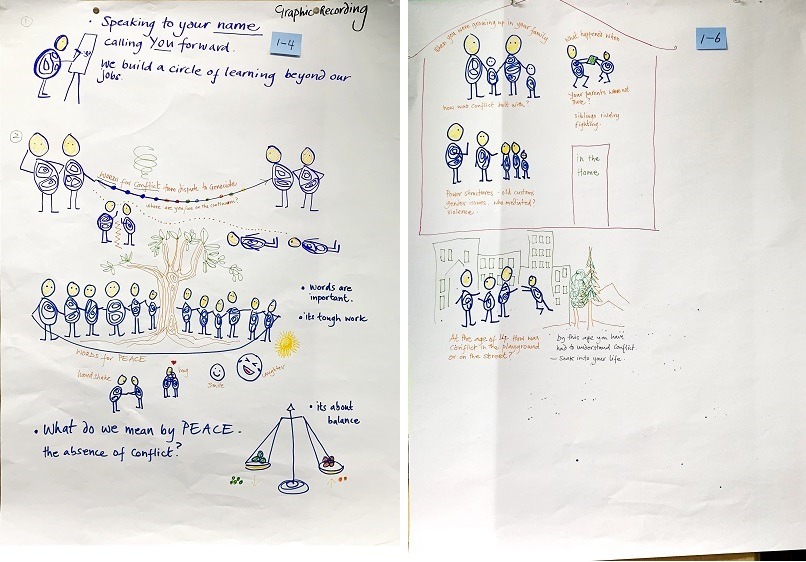 Graphic Recording
①
• Speaking to your name
calling YOU forward.
1-4
• We build a circle of learning beyond our
jobs.
②
Words for Conflict from dispute to Genocide
where are you/we on the continuum?
• Words are
important.
• its tough work
Words for PEACE
Handshake
hug
Smile
laughter
• What do we mean by PEACE.
the absence of Conflict?
• its about
balance
1-6
When you were growing up in your family
how was conflict delt with?
What happened when
Your parents were not
there?
siblings
fighting.
Power structures - old customs
gender issues. who mediated?
violence.
in the
Home
At the age of how was
Conflict in the playground
or on the street?
by this age you have
had to understand Conflict
into your life.